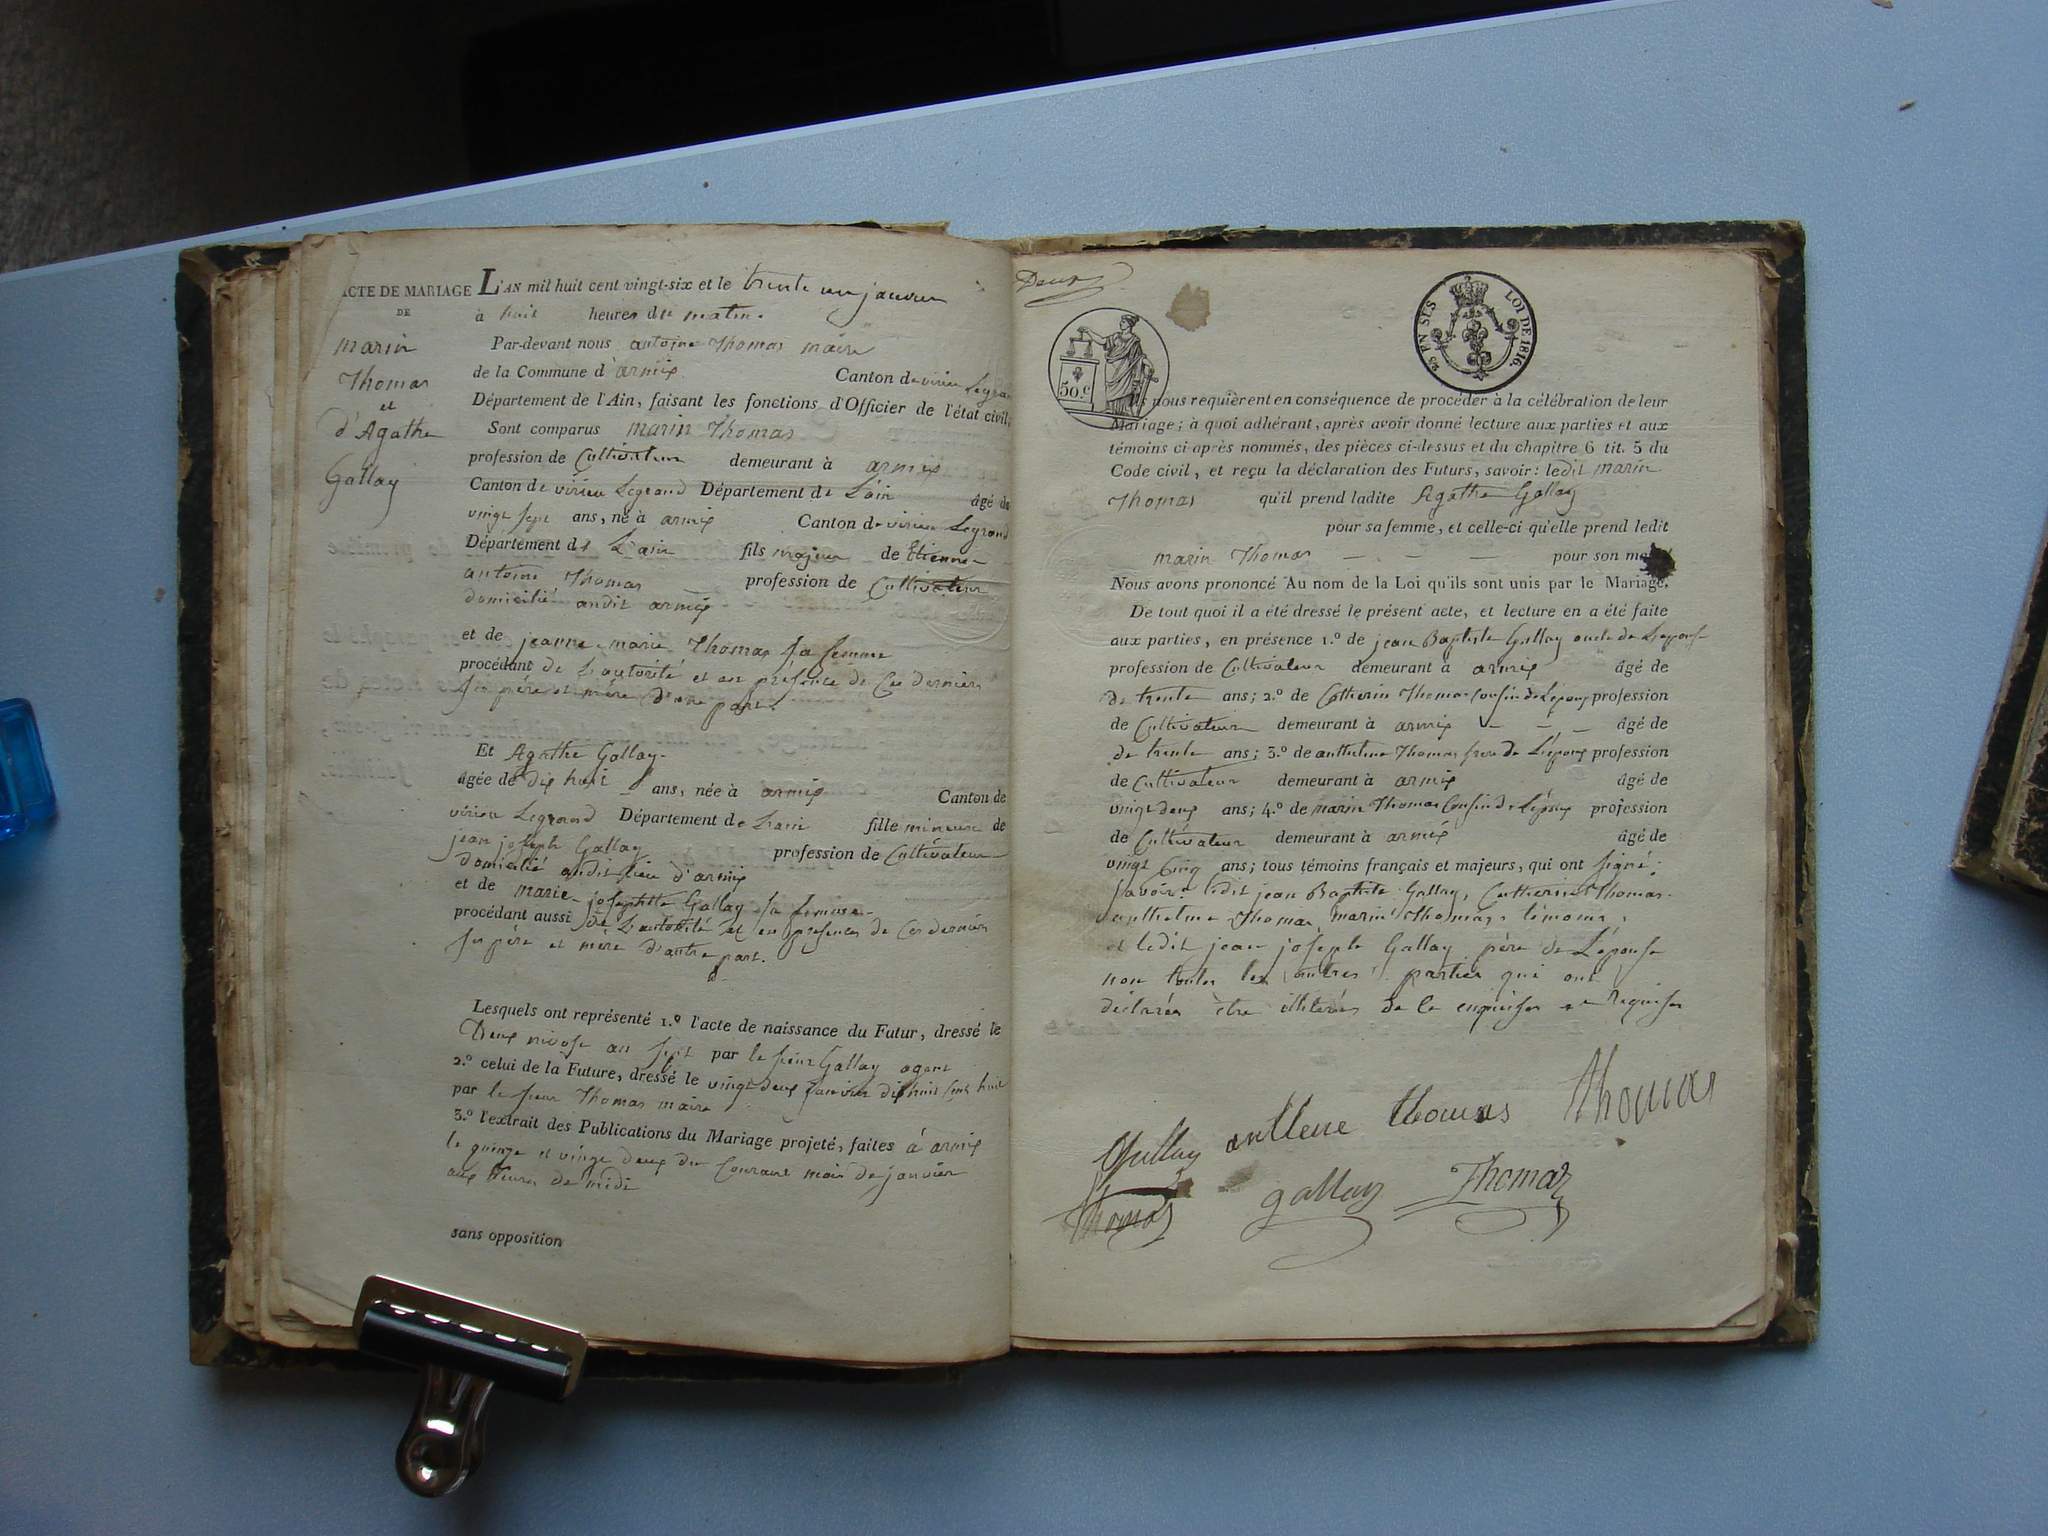 ACTE DE MARIAGE
DE
marin
Thomas
et
d'Agathe
Gallay
L'AN mil huit cent vingt-six et le trente un janvier
à huit heures du matin.
Par-devant nous antoine Thomas maire
de la Commune d'armix Canton de virieu Legrand
Département de l'Ain, faisant les fonctions d'Officier de l'état civil,
Sont comparus marin Thomas
profession de Cultivateur demeurant à armix
Canton de virieu Legrand Département de L'ain âgé de
vingt sept ans, né à armix Canton de virieu Legrand
Département de L'ain fils majeur de Etienne
antoine Thomas profession de Cultivateur
domicilié audit armix
et de jeanne marie Thomas sa femme
procédant de L'autorité et en présence de Ces derniers
ses père et mère d'une part.
Et Agathe Gallay
âgée de dix huit ans, née à armix Canton de
virieu Legrand Département de L'ain fille mineure de
jean joseph Gallay profession de Cultivateur
domicilié audit lieu d'armix
et de marie josephtte Gallay sa femme
procédant aussi de L'autorité et en présence de Ces derniers
ses père et mère d'autre part.
Lesquels ont représenté 1.º l'acte de naissance du Futur, dressé le
Deux nivose an sept par le sieur Gallay agent
2.º celui de la Future, dressé le vingt deux janvier dix huit Cent huit
par le sieur Thomas maire
3.º l'extrait des Publications du Mariage projeté, faites à armix
le quinze et vingt deux du Courant mois de janvier
aux heures de midi
sans opposition
Deux
50.c
25 EN SUS LOI DE 1816.
Ils nous requièrent en conséquence de procéder à la célébration de leur
Mariage; à quoi adhérant, après avoir donné lecture aux parties et aux
témoins ci-après nommés, des pièces ci-dessus et du chapitre 6 tit. 5 du
Code civil, et reçu la déclaration des Futurs, savoir: ledit marin
Thomas qu'il prend ladite Agathe Gallay
pour sa femme, et celle-ci qu'elle prend ledit
marin Thomas pour son
Nous avons prononcé Au nom de la Loi qu'ils sont unis par le Mariage.
De tout quoi il a été dressé le présent acte, et lecture en a été faite
aux parties, en présence 1.º de jean Baptiste Gallay oncle de L'epouse
profession de Cultivateur demeurant à armix âgé de
de trente ans; 2.º de Catherin Thomas Cousin de L'époux profession
de Cultivateur demeurant à armix âgé de
de trente ans; 3.º de anthelme Thomas frere de L'époux profession
de Cultivateur demeurant à armix âgé de
vingt deux ans; 4.º de marin Thomas Cousin de L'époux profession
de Cultivateur demeurant à armix âgé de
vingt Cinq ans; tous témoins français et majeurs, qui ont signé:
savoir: ledit jean Baptiste Gallay, Catherin Thomas
anthelme Thomas marin Thomas, témoins,
et ledit jean joseph Gallay père de L'épouse
non toutes les autres parties qui ont
déclarées être illiterés de ce enquises et requises
Gallay anthelme thomas Thomas
Thomas gallay Thomas